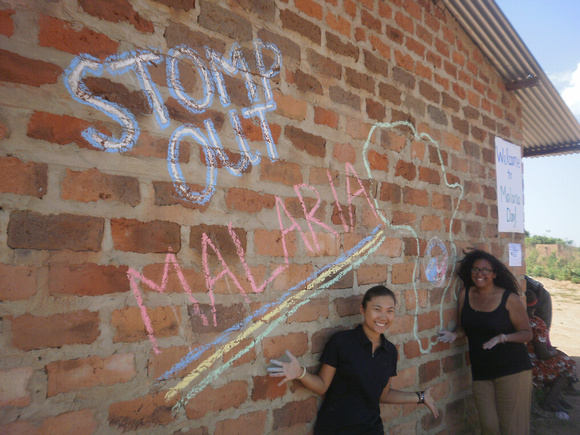 STOMP
OUT
MALARIA
Welcome
to
Malaria
Day!